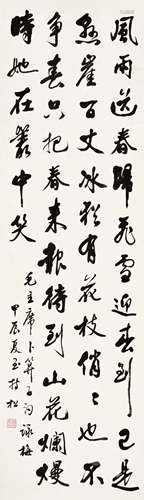 風雨送春歸飛雪迎春到已是
懸崖百丈冰猶有花枝俏〻也不
爭春只把春來報待到山花爛熳
時她在叢中笑
毛主席卜算子詞詠梅
甲辰夏